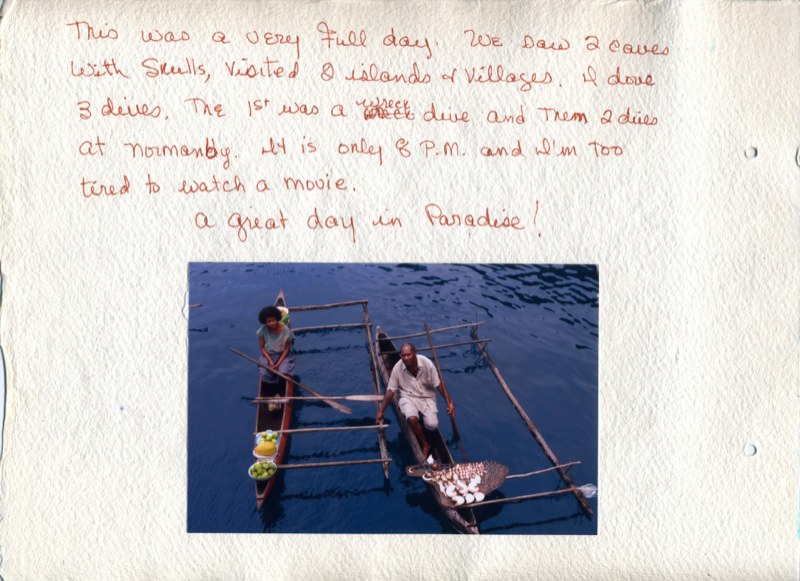 This was a very full day. We saw 2 caves
with Skulls, visited 2 islands & villages. I dove
3 dives. The 1st was a wreck dive and Them 2 dives
at normanby. It is only 8 P.M. and I'm Too
tired to watch a movie.
a great day in Paradise!